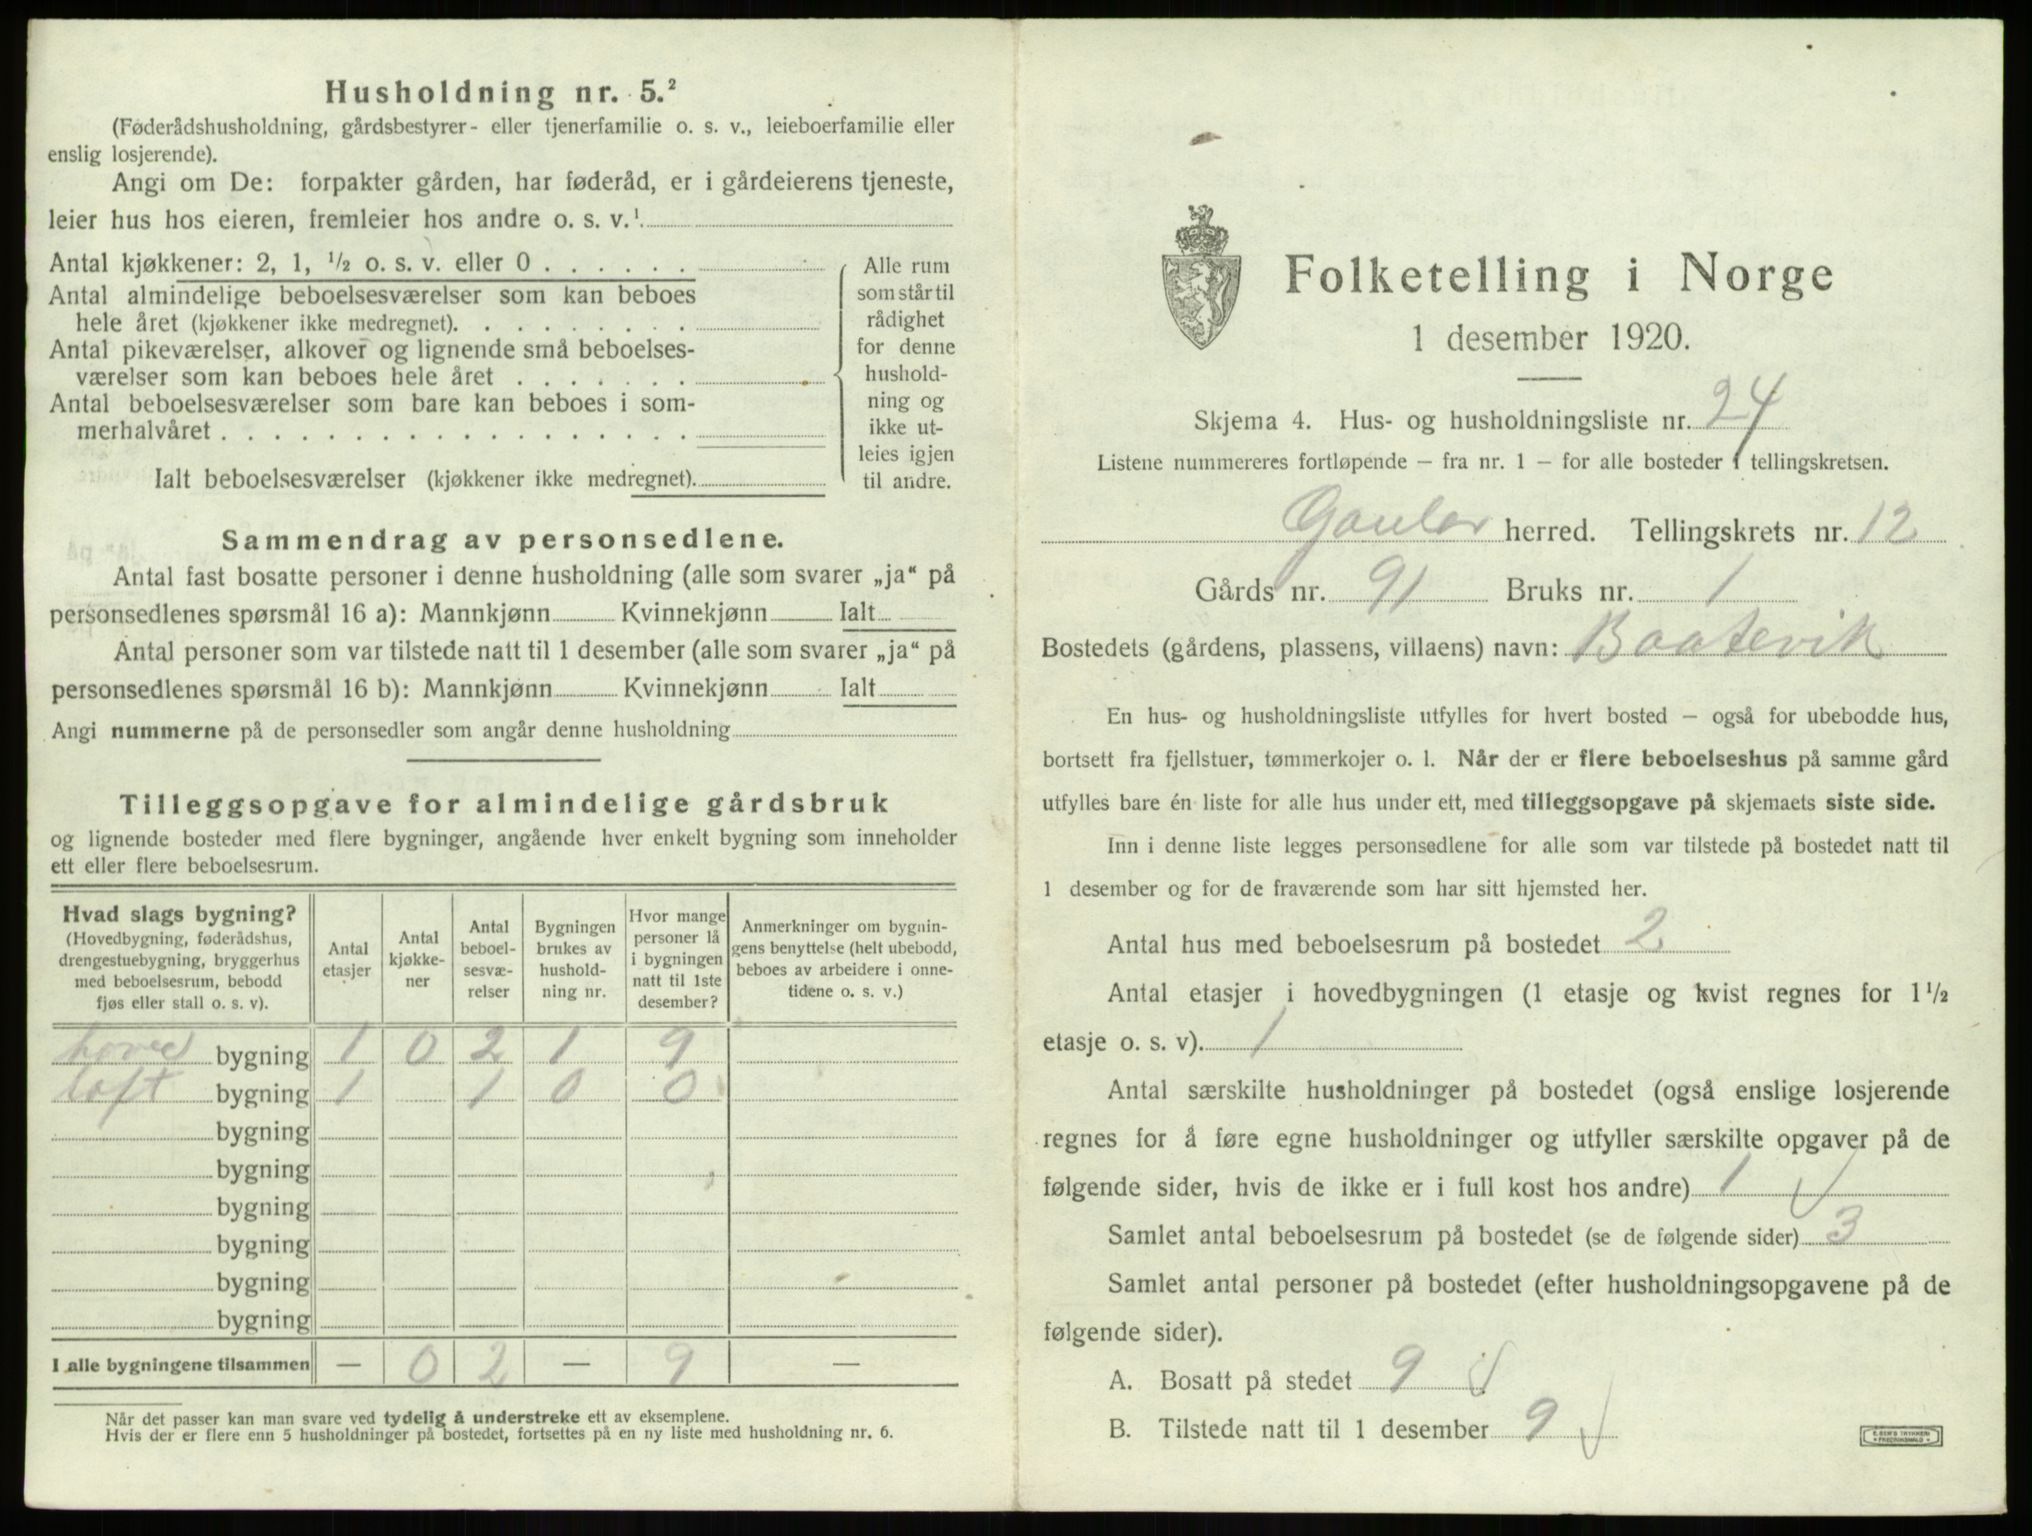 Husholdning nr. 5.²
(Føderådshusholdning, gårdsbestyrer- eller tjenerfamilie o. s. v., leieboerfamilie eller
enslig losjerende).
Angi om De: forpakter gården, har føderåd, er i gårdeierens tjeneste,
leier hus hos eieren, fremleier hos andre o. s. v.¹
Antal kjøkkener: 2, 1, ½ o. s. v. eller 0 . . . . . .
Antal almindelige beboelsesværelser som kan beboes
hele året (kjøkkener ikke medregnet). . . . . . . . .
Antal pikeværelser, alkover og lignende små beboelses-
værelser som kan beboes hele året . . . . . . .
Antal beboelsesværelser som bare kan beboes i som-
merhalvåret . . . . . . . . . . . . . . . . . .
Ialt beboelsesværelser (kjøkkener ikke medregnet).
Alle rum
som står til
rådighet
for denne
hushold-
ning og
ikke ut-
leies igjen
til andre.
Sammendrag av personsedlene.
Antal fast bosatte personer i denne husholdning (alle som svarer „ja“ på
personsedlenes spørsmål 16 a): Mannkjønn Kvinnekjønn Ialt
Antal personer som var tilstede natt til 1 desember (alle som svarer „ja“ på
personsedlenes spørsmål 16 b): Mannkjønn Kvinnekjønn Ialt
Angi nummerne på de personsedler som angår denne husholdning
Tilleggsopgave for almindelige gårdsbruk
og lignende bosteder med flere bygninger, angående hver enkelt bygning som inneholder
ett eller flere beboelsesrum.
Hvad slags bygning?
(Hovedbygning, føderådshus,
drengestuebygning, bryggerhus
med beboelsesrum, bebodd
fjøs eller stall o. s. v).
Antal
etasjer
Antal
kjøkke-
ner
Antal
beboel-
sesvæ-
relser
Bygningen
brukes av
hushold-
ning nr.
Hvor mange
personer lå
i bygningen
natt til 1ste
desember?
Anmerkninger om bygnin-
gens benyttelse (helt ubebodd,
beboes av arbeidere i onne-
tidene o. s. v.)
hoved bygning 1 0 2 1 9
loft bygning 1 1 0 0
bygning
bygning
bygning
bygning
bygning
bygning
I alle bygningene tilsammen — 0 2 — 9 —
Når det passer kan man svare ved tydelig å understreke ett av eksemplene.
Hvis der er flere enn 5 husholdninger på bostedet, fortsettes på en ny liste med husholdning nr. 6.
Folketelling i Norge
1 desember 1920.
Skjema 4. Hus- og husholdningsliste nr. 24
Listene nummereres fortløpende – fra nr. 1 – for alle bosteder i tellingskretsen.
Gaular herred. Tellingskrets nr. 12
Gårds nr. 91 Bruks nr. 1
Bostedets (gårdens, plassens, villaens) navn: Baatevik
En hus- og husholdningsliste utfylles for hvert bosted – også for ubebodde hus,
bortsett fra fjellstuer, tømmerkojer o. l. Når der er flere beboelseshus på samme gård
utfylles bare én liste for alle hus under ett, med tilleggsopgave på skjemaets siste side.
Inn i denne liste legges personsedlene for alle som var tilstede på bostedet natt til
1 desember og for de fraværende som har sitt hjemsted her.
Antal hus med beboelsesrum på bostedet 2
Antal etasjer i hovedbygningen (1 etasje og kvist regnes for 1½
etasje o. s. v). 1
Antal særskilte husholdninger på bostedet (også enslige losjerende
regnes for å føre egne husholdninger og utfyller særskilte opgaver på de
følgende sider, hvis de ikke er i full kost hos andre) 1
Samlet antal beboelsesrum på bostedet (se de følgende sider) 3
Samlet antal personer på bostedet (efter husholdningsopgavene på de
følgende sider).
A. Bosatt på stedet 9
B. Tilstede natt til 1 desember 9